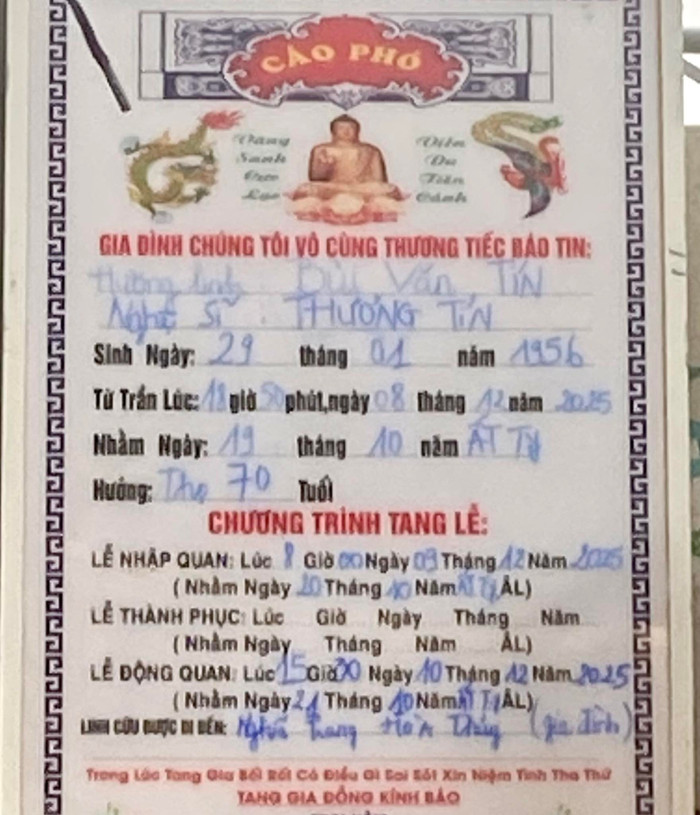 CÁO PHÓ
Vãng
Sanh
Cực
Lạc
Diên
Du
Tiên
Cảnh
GIA ĐÌNH CHÚNG TÔI VÔ CÙNG THƯƠNG TIẾC BÁO TIN:
Hương linh Bùi Văn TÍN
Nghệ Sĩ THƯƠNG TÍN
Sinh Ngày: 29 tháng 01 năm 1956
Từ Trần Lúc: 18 giờ 50 phút,ngày 08 tháng 12 năm 2025
Nhằm Ngày: 19 tháng 10 năm ẤT Tỵ
Hưởng: Thọ 70 Tuổi
CHƯƠNG TRÌNH TANG LỄ:
LỄ NHẬP QUAN: Lúc 8 Giờ 00 Ngày 09 Tháng 12 Năm 2025
( Nhằm Ngày 20 Tháng 10 Năm ẤT Tỵ ÂL)
LỄ THÀNH PHỤC: Lúc Giờ Ngày Tháng Năm
( Nhằm Ngày Tháng Năm ÂL)
LỄ ĐỘNG QUAN: Lúc 15 Giờ Ngày 10 Tháng 12 Năm 2025
( Nhằm Ngày 21 Tháng 10 Năm ẤT Tỵ ÂL)
LINH CỮU ĐƯỢC DI ĐẾN: Nghĩa Trang (gia đình)
Trong Lúc Tang Gia Bối Rối Có Điều Gì Sai Sót Xin Niệm Tình Tha Thứ
TANG GIA ĐỒNG KÍNH BÁO